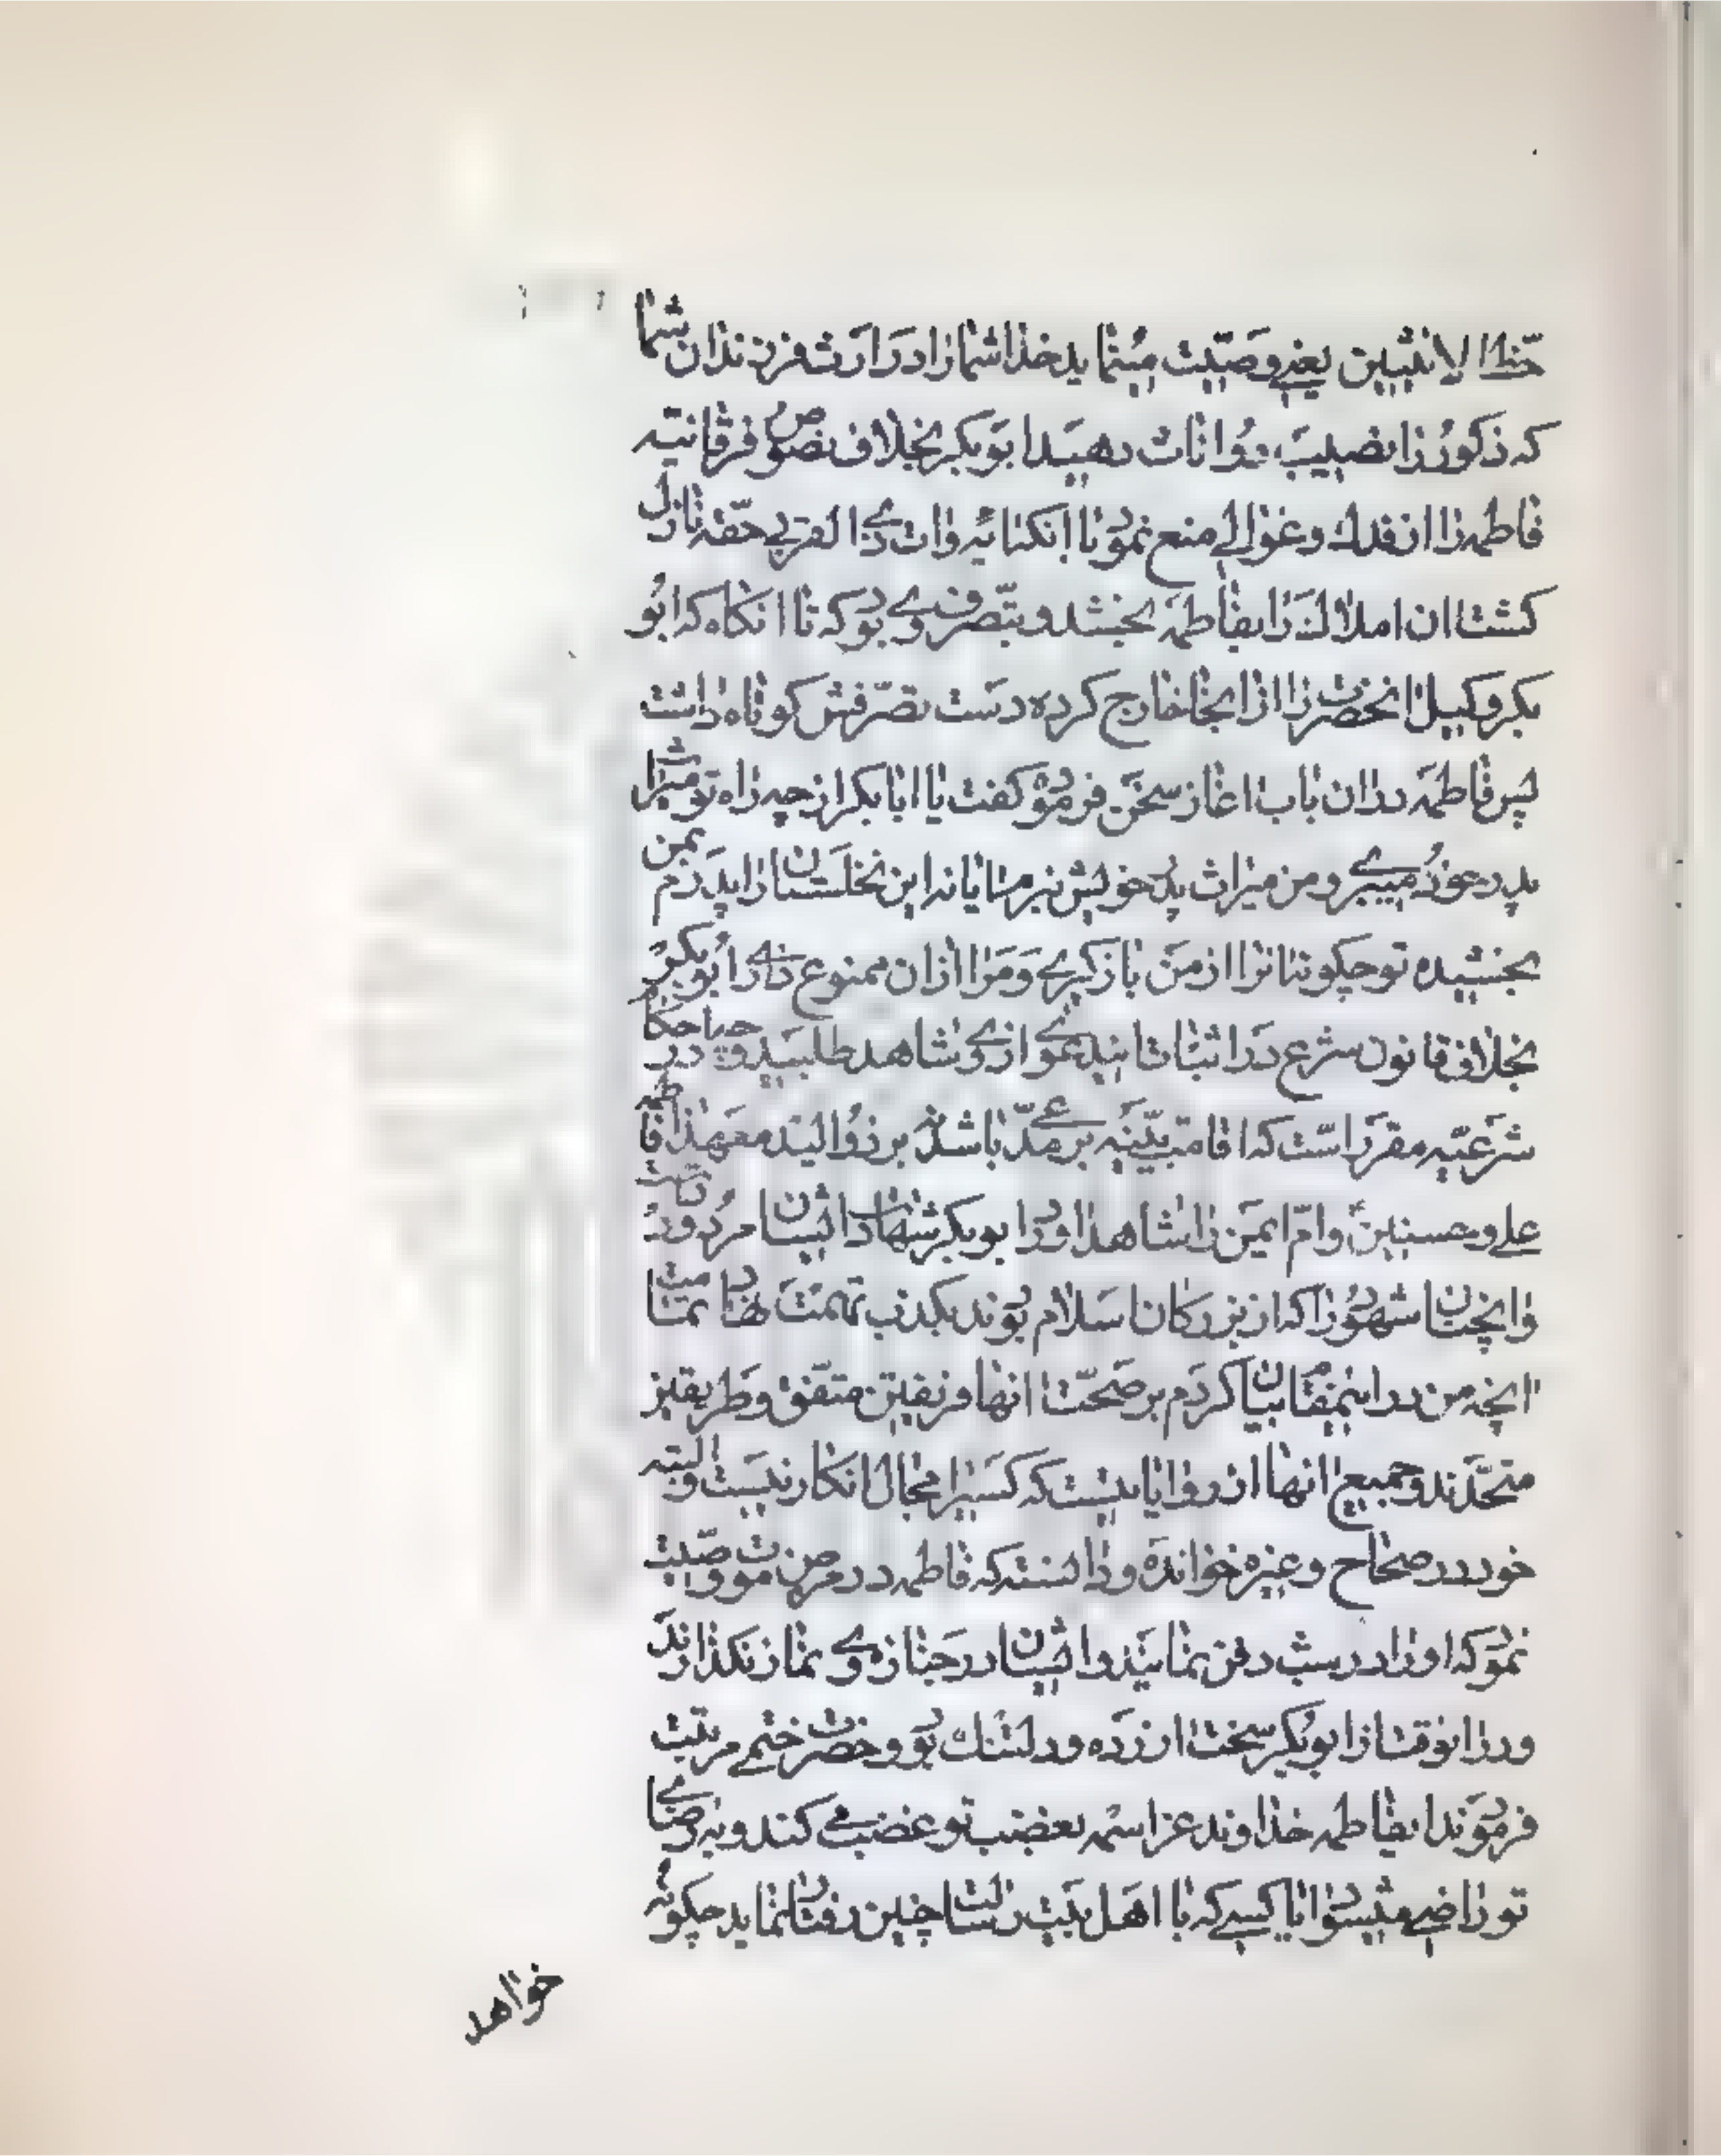 حظ الانثیین یعنی وصیت مینماید خدا شما را در ارث فرزندان شما
که ذکور را نصیب دو اناث دهید ابوبکر بخلاف نصوص فرقانیه
فاطمه را از فدک و عوالی منع نمود با انکه ایه وات ذی القربی حقه نازل
کشت ان املاک را بفاطمه بخشد و بتصرف وی بود که تا انکاه که ابو
بکر وکیل انحضرت را از انجا خارج کرده دست تصرفش کوتاه داشت
پس فاطمه در ان باب اغاز سخن فرمود کفت یا ابا بکر از چه راه تو میراث
پدر خود میبری و من میراث پدر خویش نبرم ایا نه این نخلستان را پدرم بمن
بخشیده تو چکونه انرا از من باز کیری و مرا از ان ممنوع داری ابوبکر
بخلاف قانون شرع در اثبات این دعوی از وی شاهد طلبید و در احکام
شرعیه مقرر است که اقامت بینه بر مدعی باشد نه بر ذوالید معهذا فاطمه
علی و حسنین و ام ایمن را شاهد اورد ابوبکر شهادت ایشان مردود داشت
و انچنان شهود را که از بزرکان اسلام بودند بکذب تهمت نهاد
انچه من در اینمقام بیان کردم بر صحت انها فریقین متفق و طریقین
متحدند و جمیع انها از روایاتیست که کسیرا مجال انکار نیست و البته
خود در صحاح و غیره خوانده و دانسته که فاطمه در مرض موت وصیت
نمود که او را در شب دفن نمایند و ایشان در جنازه وی نماز نکذارند
و در انوقت از ابوبکر سخت ازرده و دلتنک بود و حضرت ختمی مرتبت
فرمودند ایفاطمه خداوند عز اسمه بغضب تو غضب می کند و به رضای
تو راضی میشود ایا کسی که با اهل بیت رسالت چنین رفتار نماید چکونه
خواهد